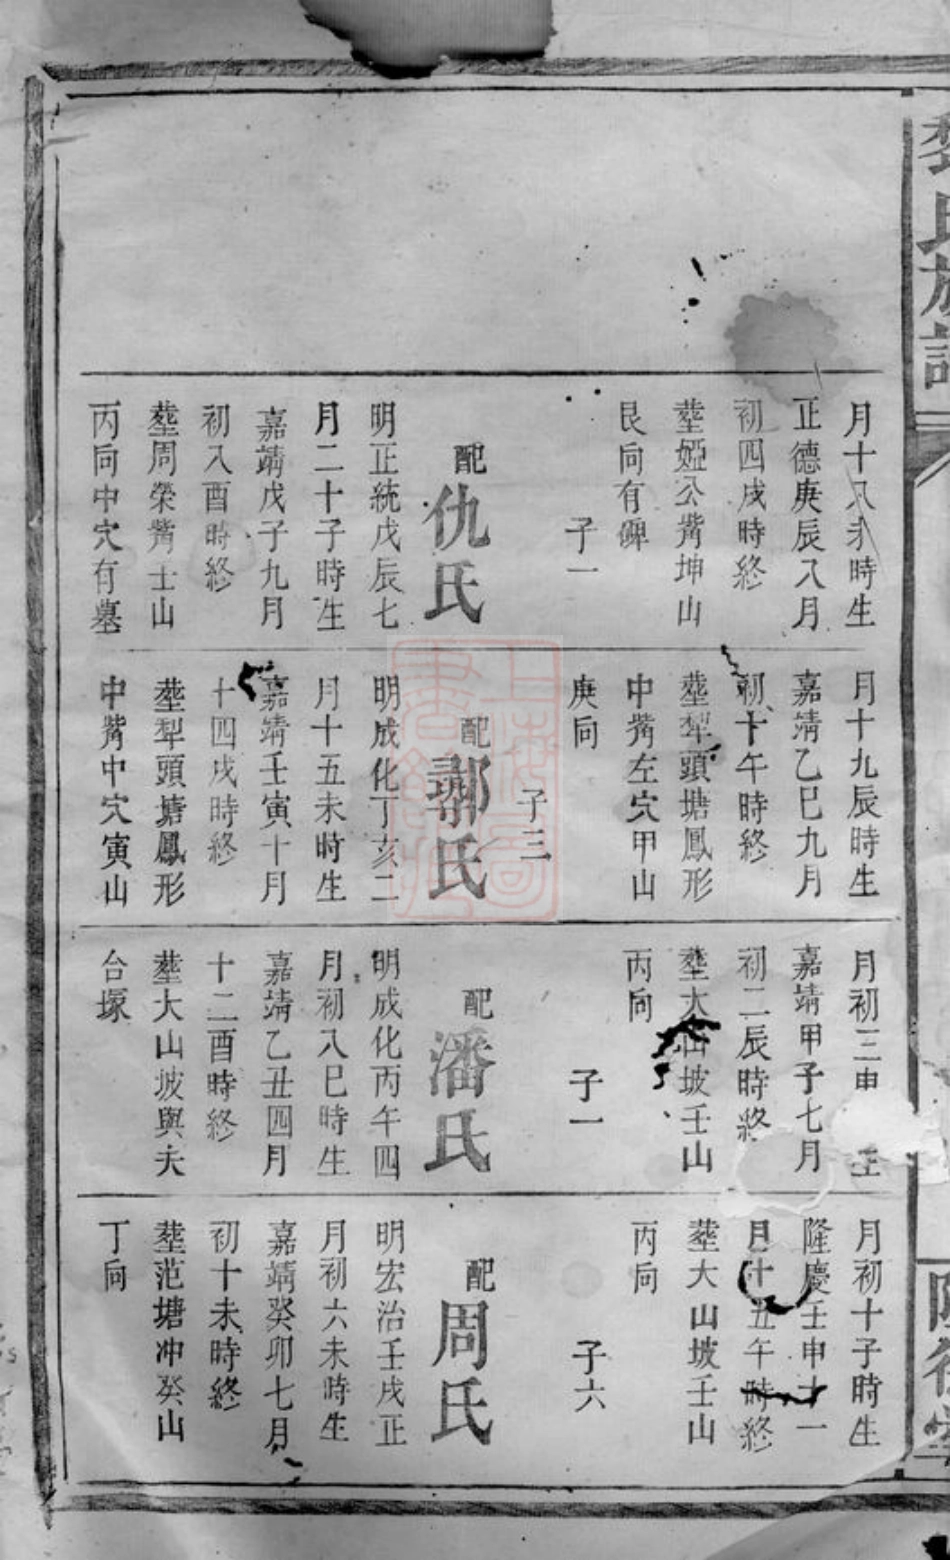 氏族譜
月十八未時生
正德庚辰八月
初四戌時終
塟婭公觜坤山
艮向有碑
子一
配
仇氏
明正統戊辰七
月二十子時生
嘉靖戊子九月
初八酉時終
塟周榮觜壬山
丙向中穴有墓
月十九辰時生
嘉靖乙巳九月
初十午時終
塟犁頭塘鳳形
中觜左穴甲山
庚向
子三
配
鄢氏
明成化丁亥二
月十五未時生
嘉靖壬寅十月
十四戌時終
塟犁頭塘鳳形
中觜中穴寅山
月初三申
嘉靖甲子七月
初二辰時終
塟大山坡壬山
丙向
子一
配
潘氏
明成化丙午四
月初八巳時生
嘉靖乙丑四月
十二酉時終
塟大山坡與夫
台塚
月初十子時生
隆慶壬申十一
月十五午時終
塟大山坡壬山
丙向
子六
配
周氏
明宏治壬戌正
月初六未時生
嘉靖癸卯七月
初十未時終
塟范塘冲癸山
丁向